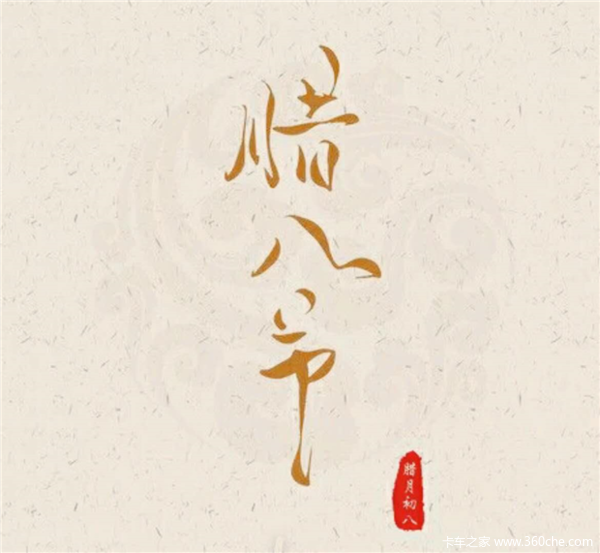 腊八节
腊月初八
卡车之家 www.360che.com